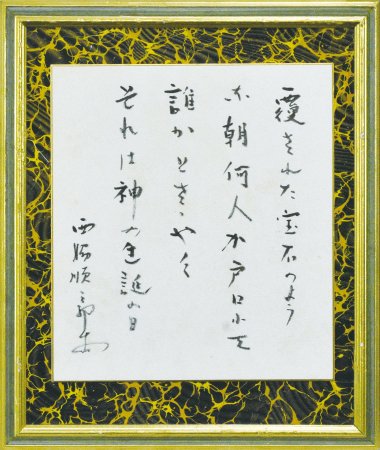 覆された宝石のよう
な朝何人か戸口にて
誰かとさゝやく
それは神の生誕の日
西脇順三郎